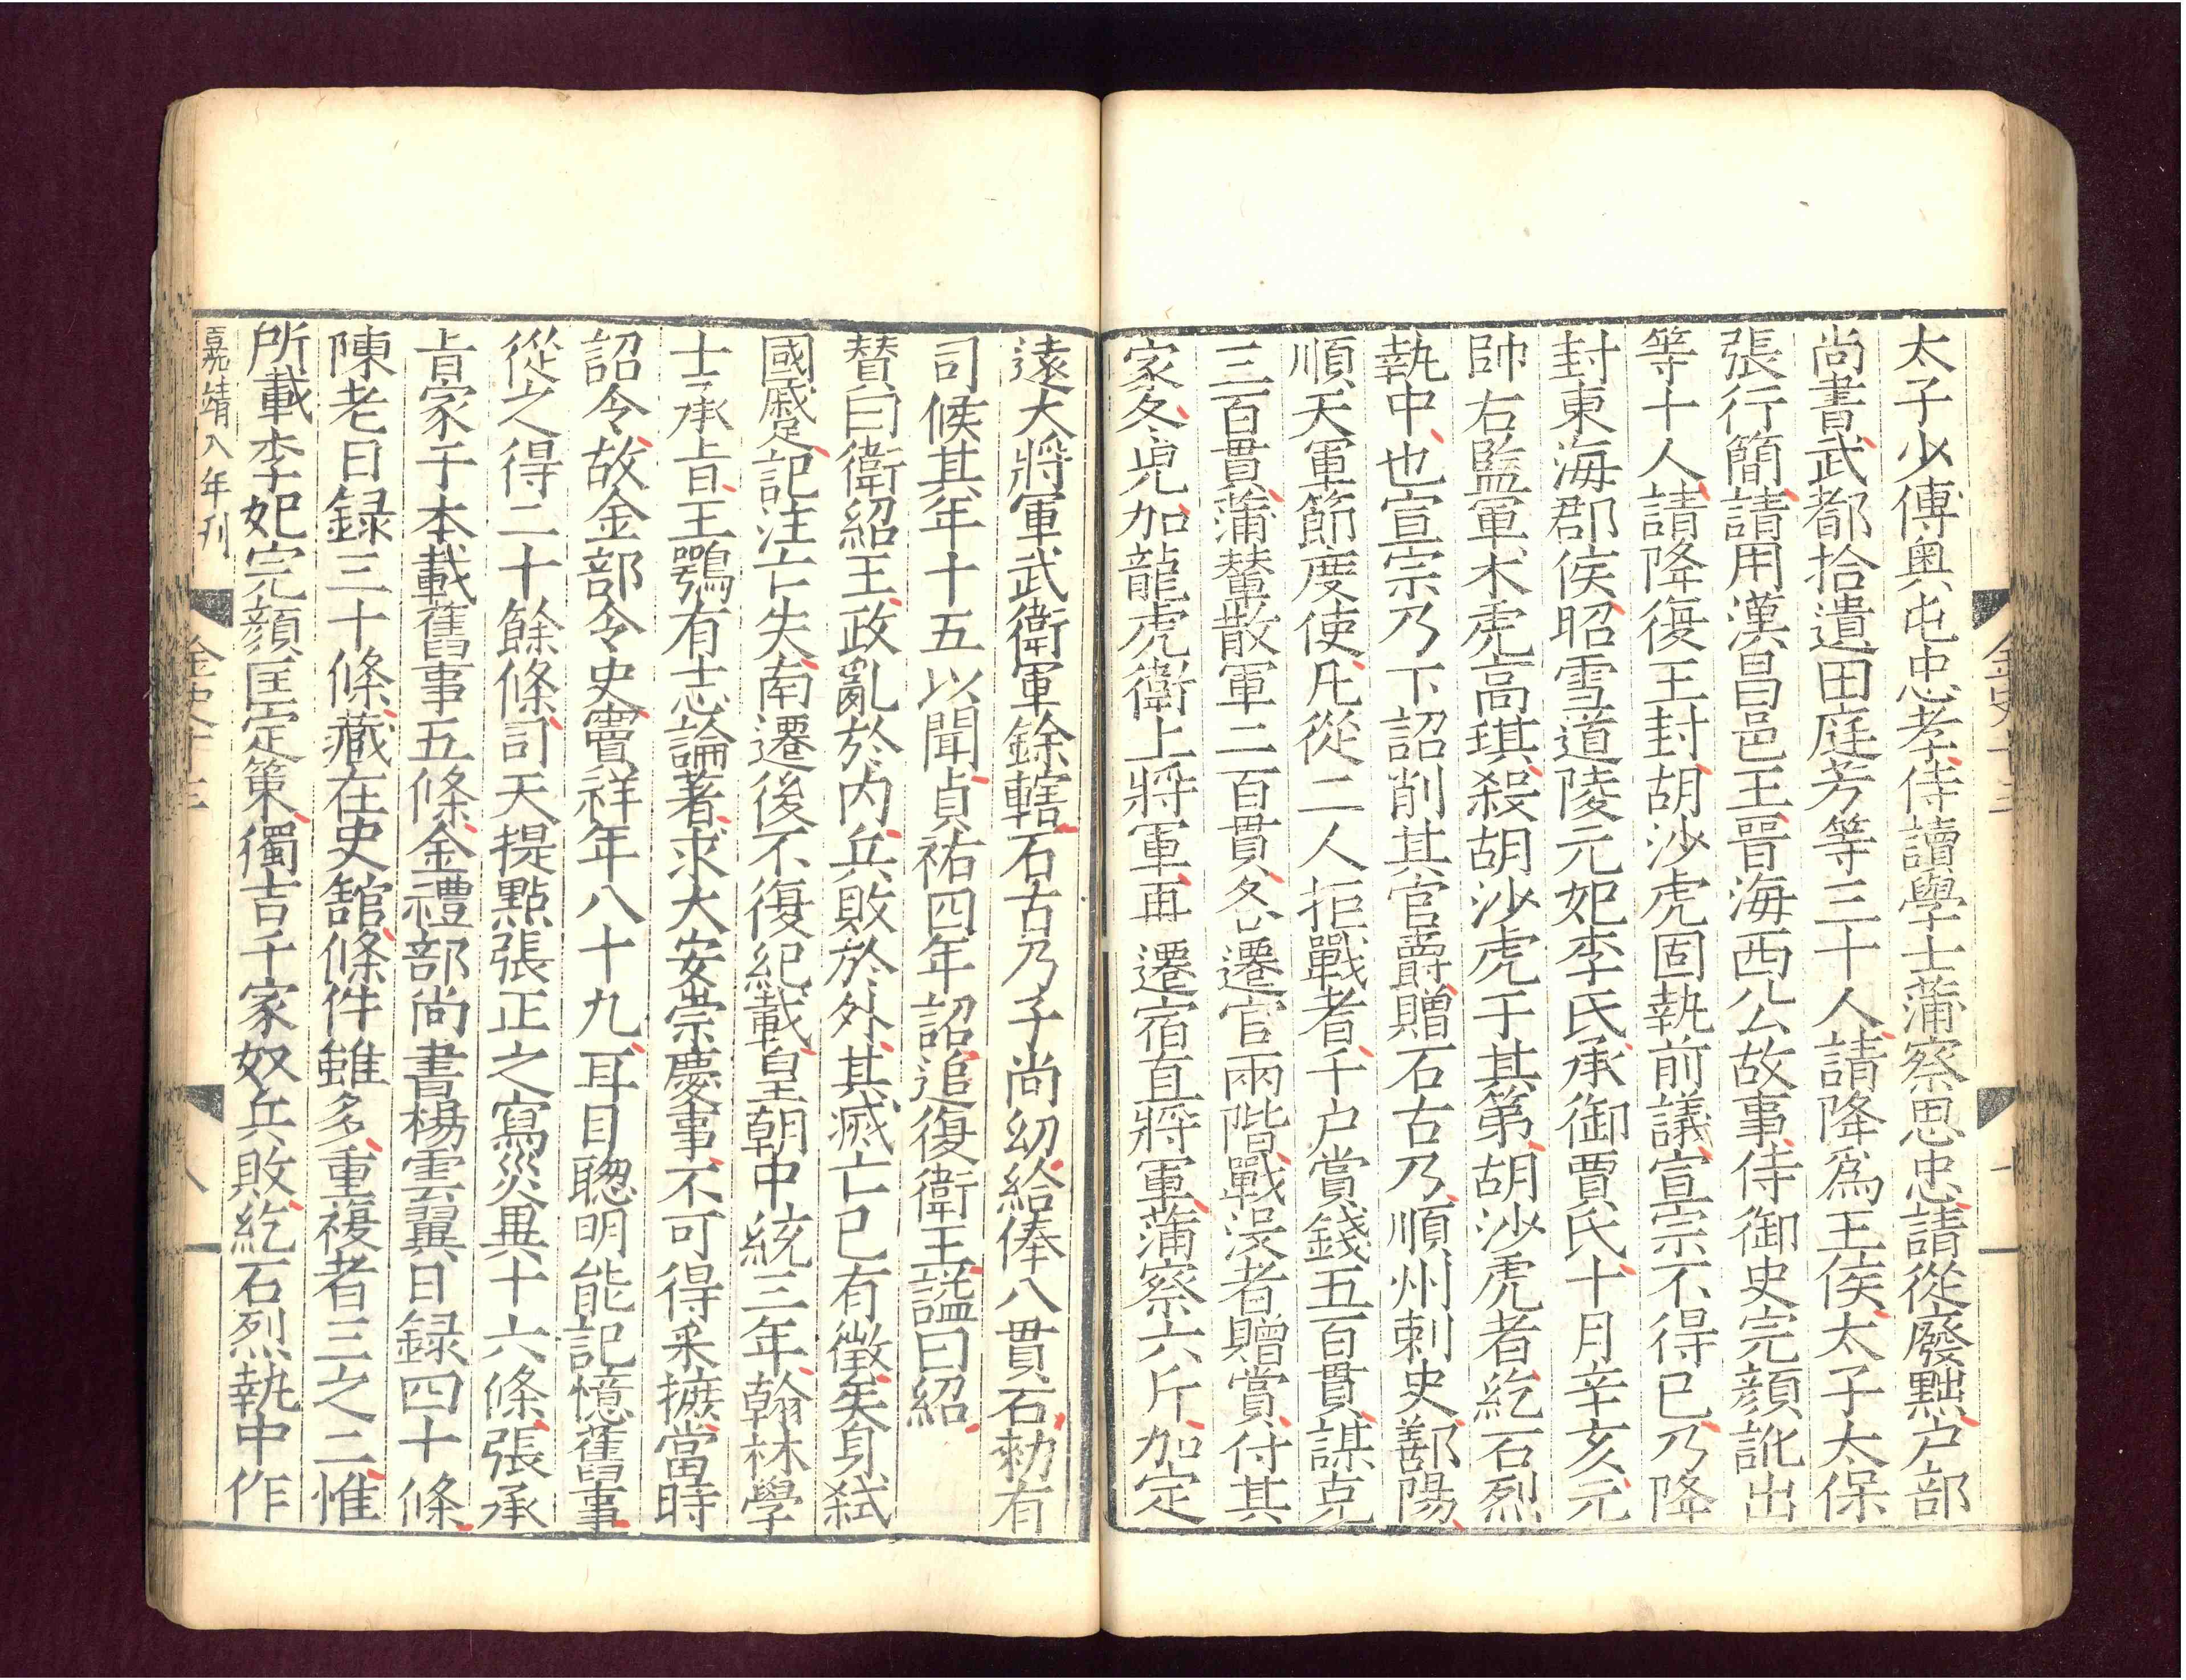 太子少傅奧屯忠孝侍讀學士蒲察思忠請從廢黜户部
尚書武都拾遺田庭芳等三十人請降爲王侯太子太保
張行簡請用漢昌邑王晉海西公故事侍御史完顏訛出
等十人請降復王封胡沙虎固執前議宣宗不得已乃降
封東海郡侯昭雪道陵元妃李氏承御賈氏十月辛亥元
帥右監軍术虎高琪殺胡沙虎于其第胡沙虎者紇石烈
執中也宣宗乃下詔削其官爵贈石古乃順州刺史鄯陽
順天軍節度使凡從二人拒戰者千户賞錢五百貫謀克
三百貫蒲輦散軍二百貫各遷官兩階戰没者贈賞付其
家冬兒加龍虎衛上將軍再遷宿直將軍蒲察六斤加定
遠大將軍武衛軍鈐轄石古乃子尚幼給俸八貫石勑有
司候其年十五以聞貞祐四年詔追復衛王謚曰紹
替曰衛紹王政亂於内兵敗於外其滅亡已有徵矣身弑
國蹙記注亡失南遷後不復紀載皇朝中統三年翰林學
士承旨王鶚有志論著求大安崇慶事不可得采摭當時
詔令故金部令史竇祥年八十九耳目聰明能記憶舊事
從之得二十餘條司天提點張正之寫災異十六條張承
旨家手本載舊事五條金禮部尚書楊雲翼日録四十條
陳老日録三十條藏在史舘條件雖多重複者三之二惟
所載李妃完顏匡定策獨吉千家奴兵敗紇石烈執中作
嘉靖八年刊
金史十三
八